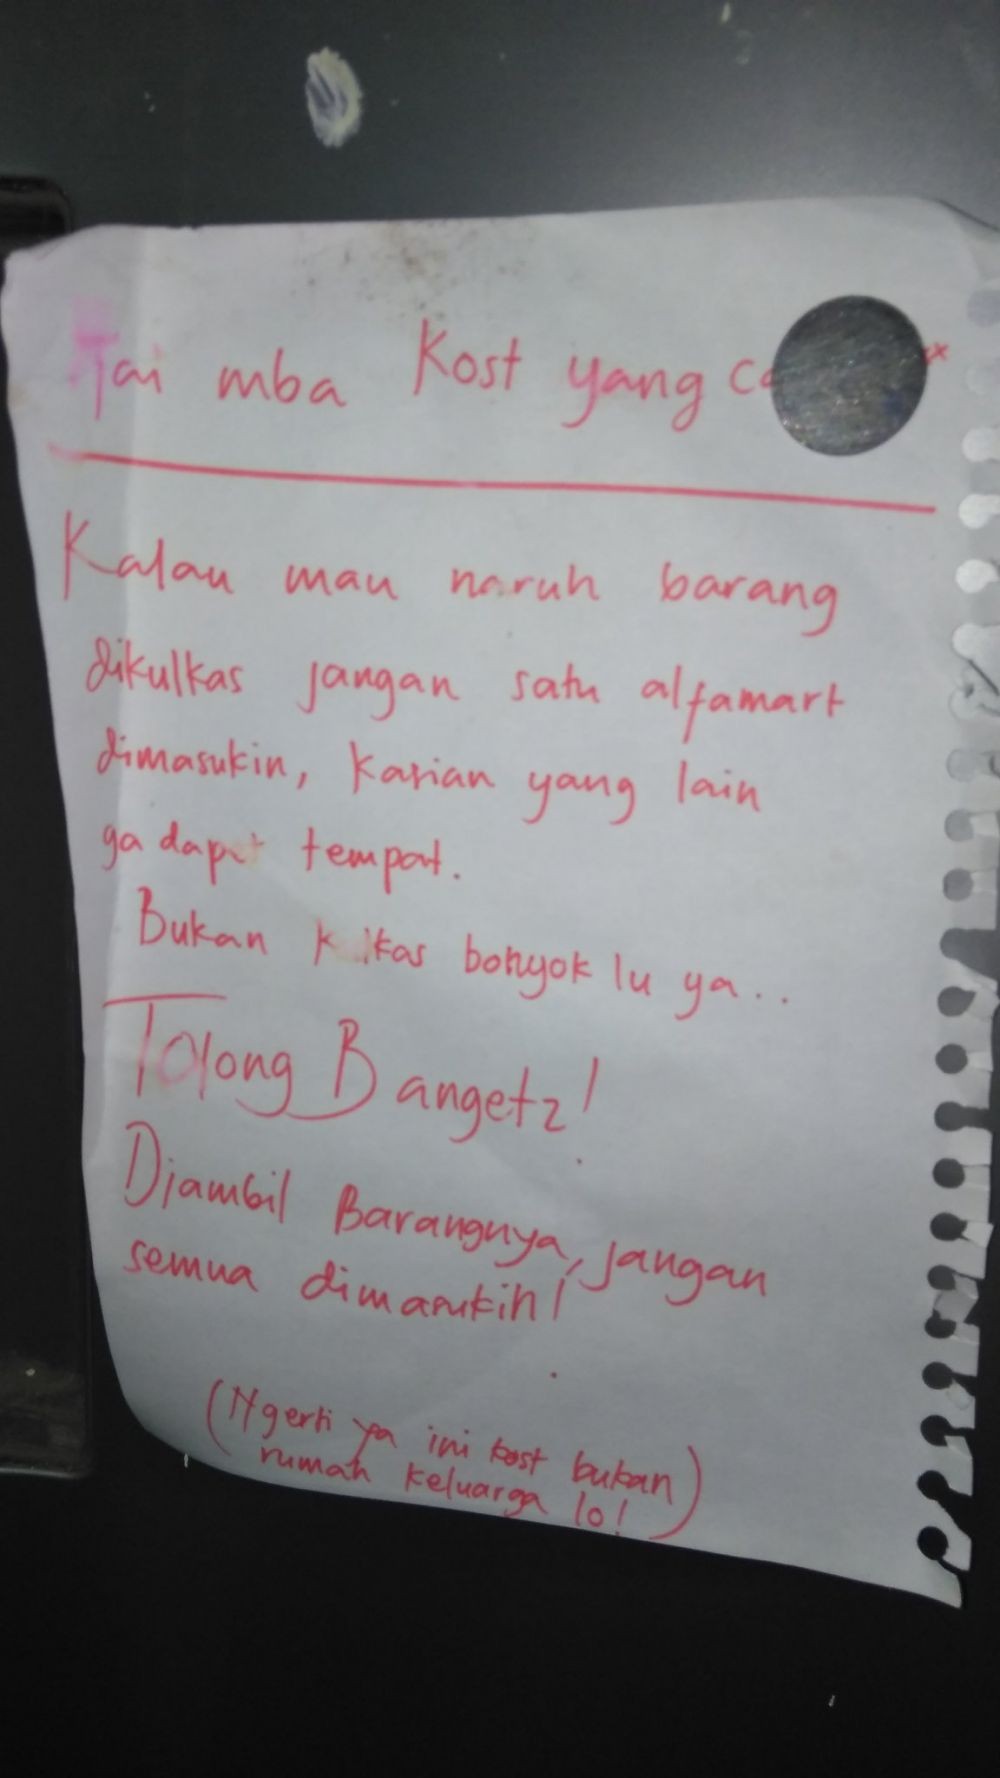 Tai mba Kost yang
Kalau mau naruh barang
dikulkas jangan satu alfamart
dimasukin, Kasian yang lain
ga dapet tempat.
Bukan kulkas bonyok lu ya..
Tolong Bangetz!
Diambil Barangnya, jangan
semua dimasukin!
(Ngerti ya ini kost bukan
rumah keluarga lo!)